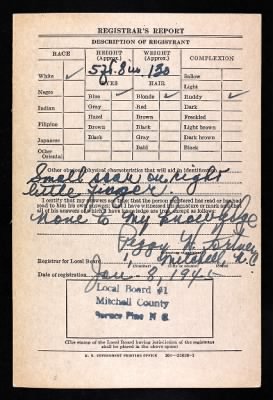 REGISTRAR'S REPORT
DESCRIPTION OF REGISTRANT
RACE HEIGHT (Approx.) WEIGHT (Approx.) COMPLEXION
5 ft. 8 in. 130
White ✓ EYES HAIR Sallow
Light
Negro Blue ✓ Blonde ✓ Ruddy ✓
Indian Gray Red Dark
Filipino Hazel Brown Freckled
Japanese Brown Black Light brown
Other Oriental Black Gray Dark brown
Bald Black
Other obvious physical characteristics that will aid in identification
Small scar on right
little finger.
I certify that my answers are true; that the person registered has read or has had
read to him his own answers; that I have witnessed his signature or mark and that
all of his answers of which I have knowledge are true, except as follows:
None to my knowledge
Peggy
Registrar for Local Board 1 Mitchell, N.C.
(Number)
Date of registration Jan. 8, 1945
Local Board #1
Mitchell County
Spruce Pine N C
(The stamp of the Local Board having jurisdiction of the registrant
shall be placed in the above space)
U. S. GOVERNMENT PRINTING OFFICE